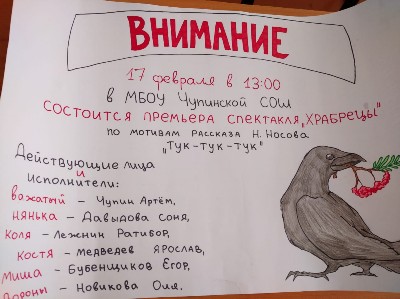 ВНИМАНИЕ
17 февраля в 13:00
в МБОУ Чупинской СОШ
состоится премьера спектакля „ХРАБРЕЦЫ"
по мотивам рассказа Н. Носова
„Тук-тук-тук"
Действующие лица
и
исполнители:
вожатый – Чупин Артём,
нянька – Давыдова Соня,
Коля – Лежнин Ратибор,
Костя – Медведев Ярослав,
Миша – Бубенщиков Егор,
Вороны – Новикова Оля,